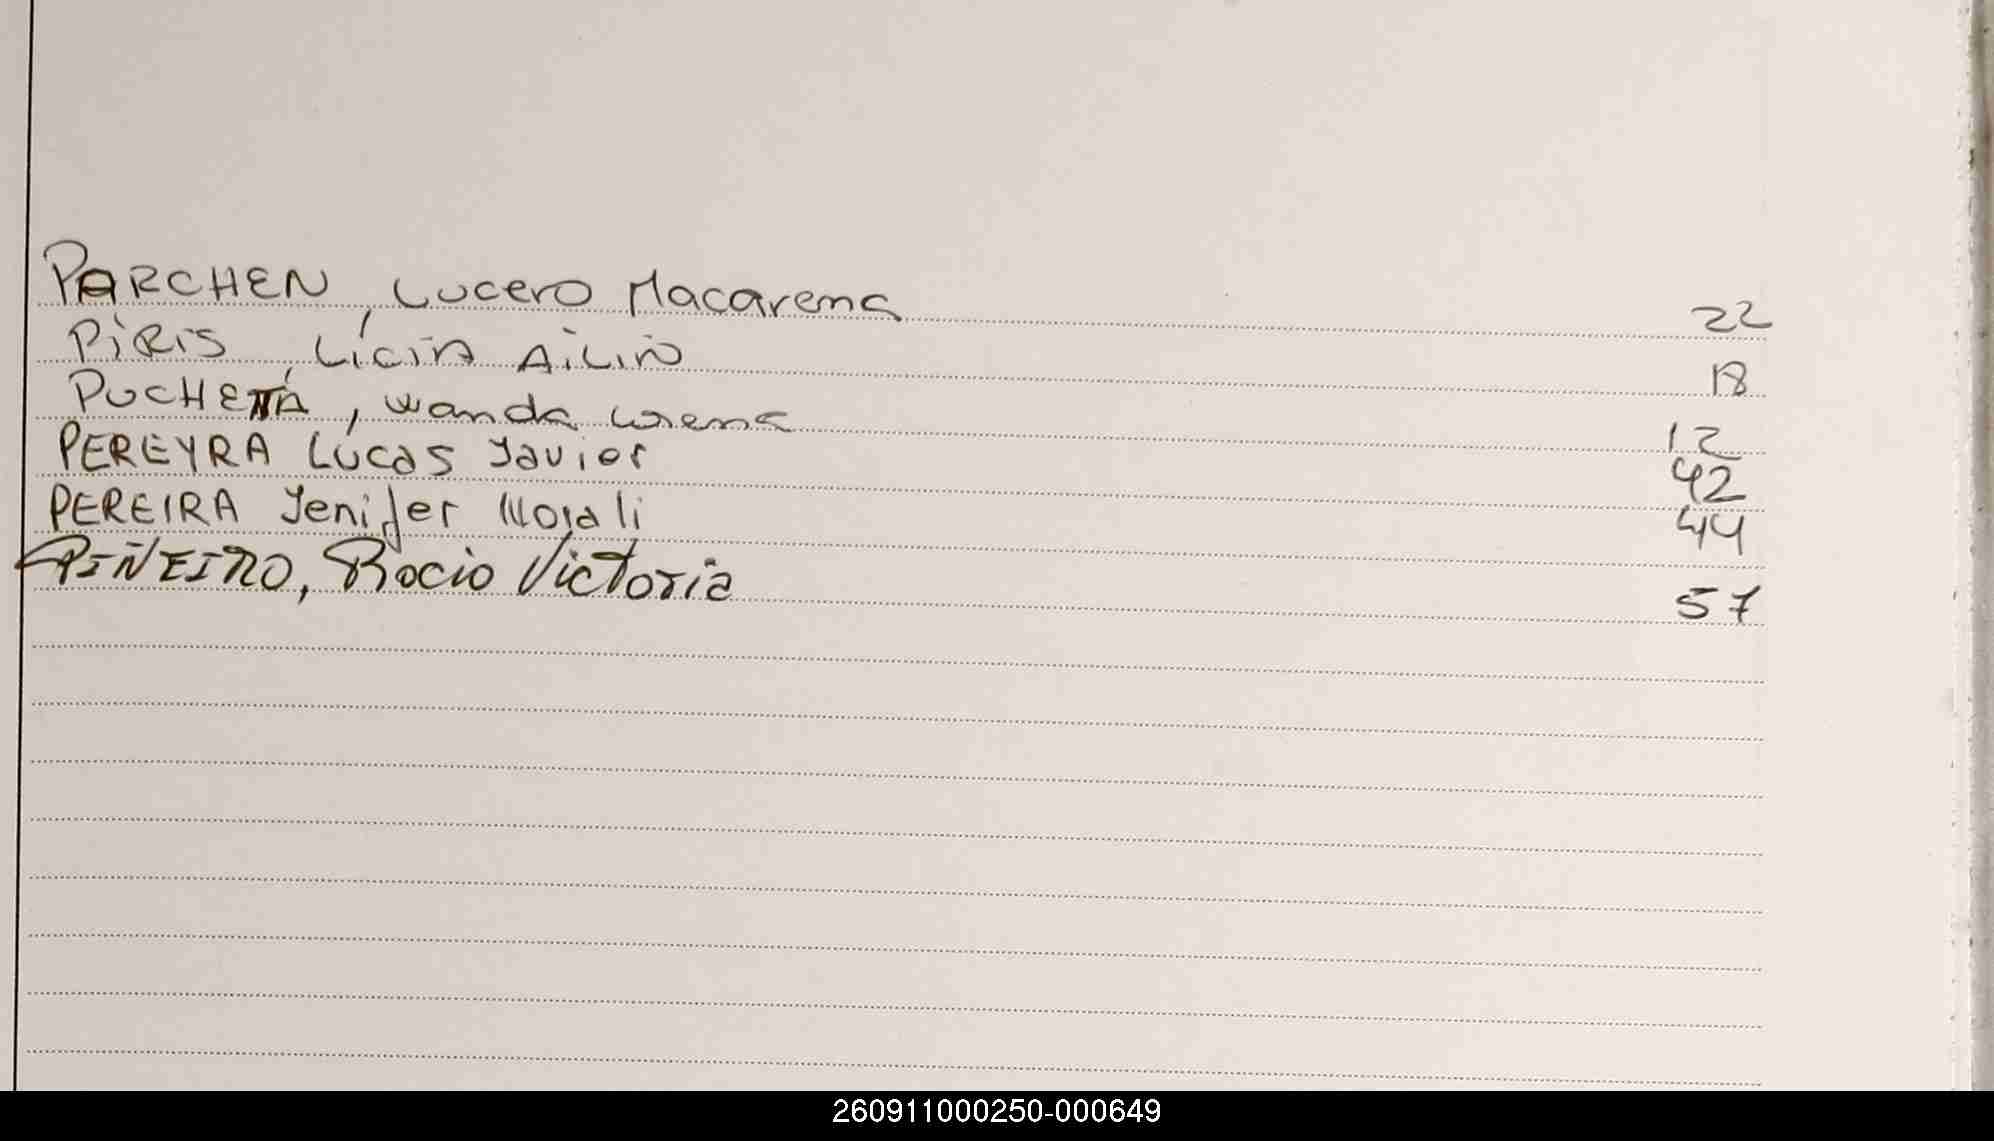 PARCHEN, Lucero Macarena 22
PIRIS, Licia Ailin 18
PUCHETA, Wanda Lorena 12
PEREYRA Lucas Javier 42
PEREIRA Jenifer 44
PIÑEIRO, Rocio Victoria 57
260911000250-000649